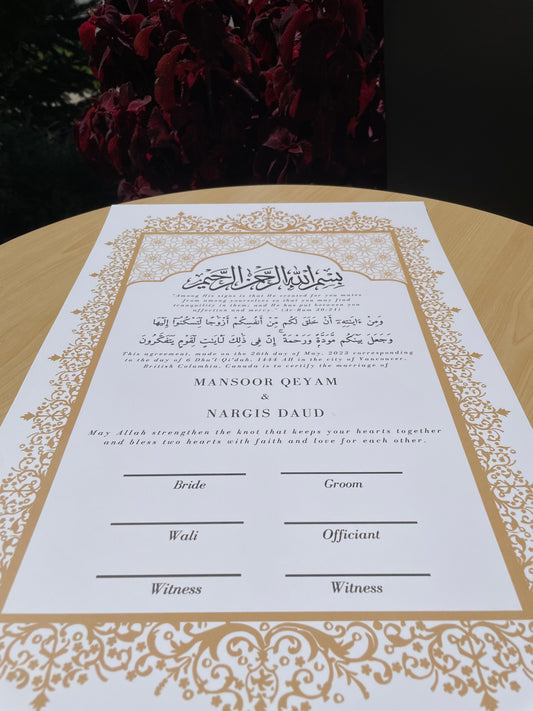 بسم الله الرحمن الرحيم
"Among His signs is that He created for you mates
from among yourselves so that you may find
tranquility in them, and He has put between you
affection and mercy." (Ar-Rum 30:21)
وَمِنْ ءَايَـٰتِهِۦٓ أَنْ خَلَقَ لَكُم مِّنْ أَنفُسِكُمْ أَزْوَٰجًا لِّتَسْكُنُوٓا۟ إِلَيْهَا
وَجَعَلَ بَيْنَكُم مَّوَدَّةً وَرَحْمَةً ۚ إِنَّ فِى ذَٰلِكَ لَـَٔايَـٰتٍ لِّقَوْمٍ يَتَفَكَّرُونَ
This agreement, made on the 26th day of May, 2023 corresponding
to the day of 6 Dhu'l-Qi'dah, 1444 AH in the city of Vancouver,
British Columbia, Canada is to certify the marriage of
MANSOOR QEYAM
&
NARGIS DAUD
May Allah strengthen the knot that keeps your hearts together
and bless two hearts with faith and love for each other.
Bride Groom
Wali Officiant
Witness Witness